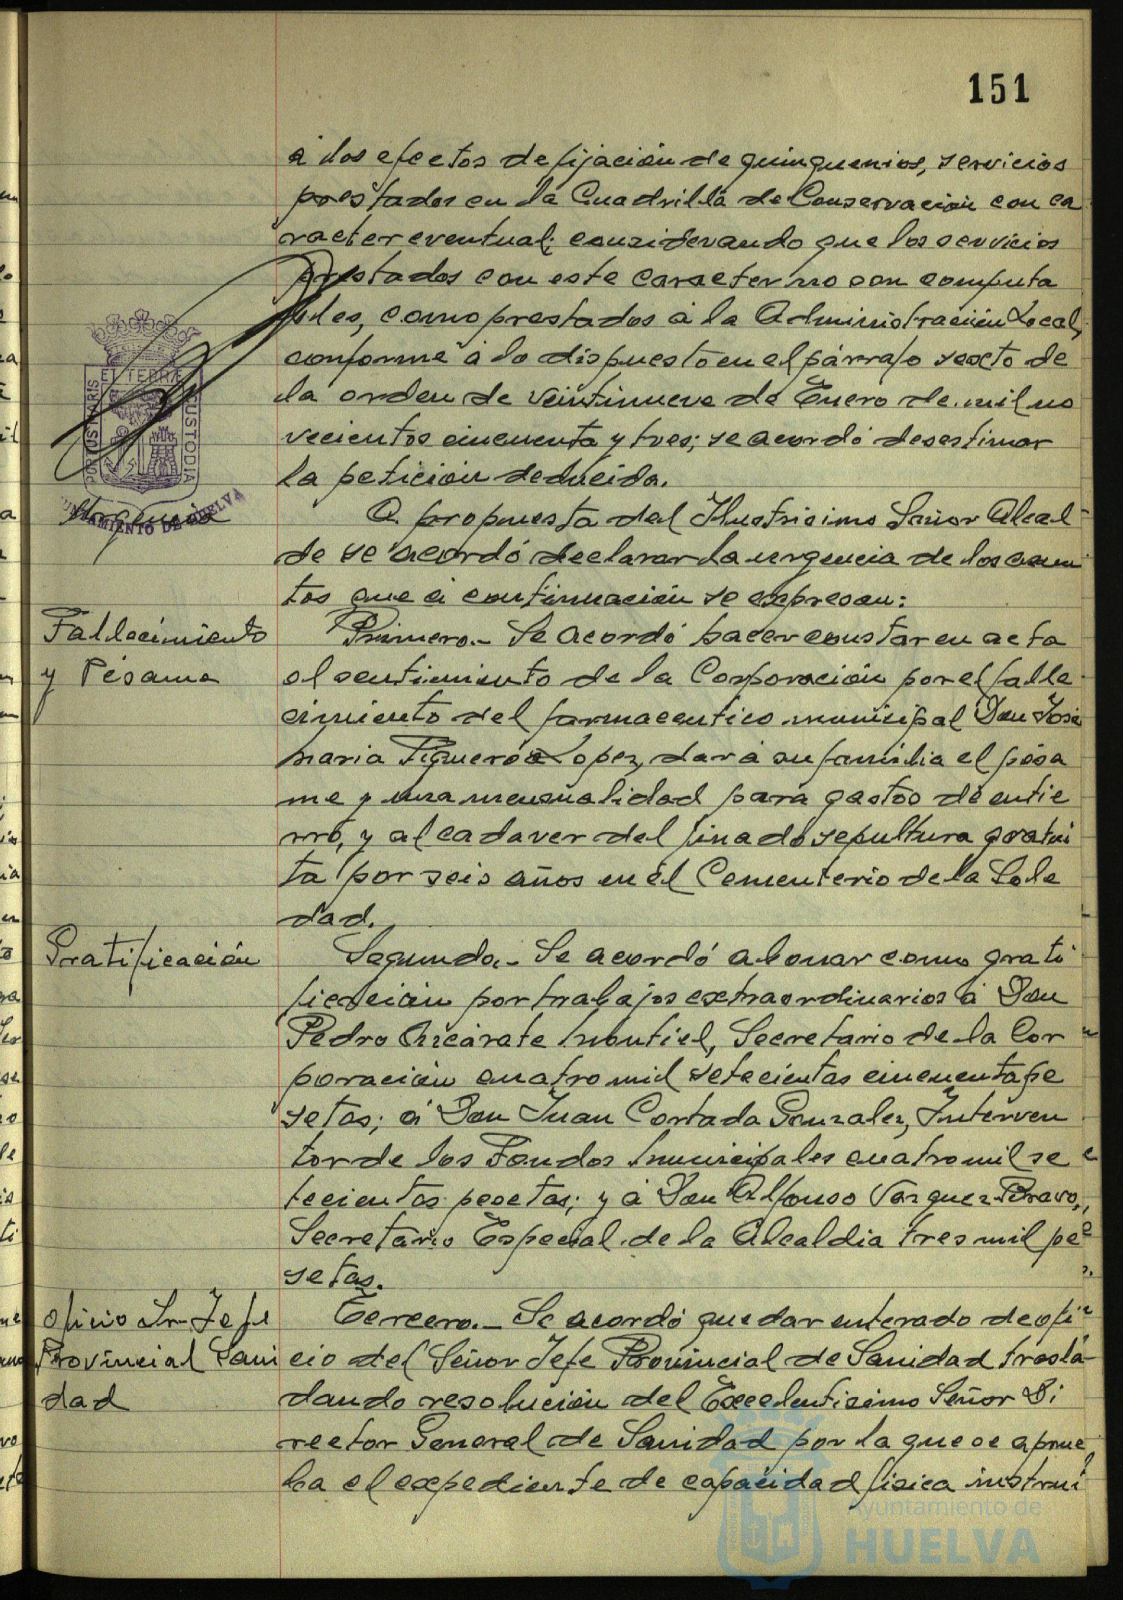 151
á los efectos de fijación de quinquenios, servicios
prestados en la Cuadrilla de Conservación con ca
racter eventual; considerando que los servicios
prestados con este caracter no son computa
bles, como prestados á la Administración Local,
conforme á lo dispuesto en el párrafo sexto de
la orden de veintinueve de Enero de mil no
vecientos cincuenta y tres; se acordó desestimar
la petición deducida.
ET TERRÆ
PORTUS MARIS
CUSTODIA
AYUNTAMIENTO DE HUELVA
Urgencia
A propuesta del Ilustrisimo Señor Alcal
de se acordó declarar la urgencia de los asun
tos que á continuación se expresan:
Fallecimiento
y Pésame
Primero.- Se acordó hacer constar en acta
el sentimiento de la Corporación por el falle
cimiento del farmaceutico municipal Don José
Maria Figueroa Lopez, dar á su familia el pésa
me y una mensualidad para gastos de entie
rro, y al cadaver del finado sepultura gratui
ta por seis años en el Cementerio de la Sole
dad.
Gratificación
Segundo.- Se acordó abonar como grati
ficación por trabajos extraordinarios á Don
Pedro Azcárate Montiel, Secretario de la Cor
poración cuatro mil setecientas cincuenta pe
setas; á Don Juan Cortada Gonzalez, Interven
tor de los Fondos Municipales cuatro mil se
tecientas pesetas; y á Don Alfonso Vazquez Bravo,
Secretario Especial de la Alcaldia tres mil pe
setas.
Oficio Sr. Jefe
Provincial Sani
dad
Tercero.- Se acordó quedar enterado de ofi
cio del Señor Jefe Provincial de Sanidad trasla
dando resolución del Excelentisimo Señor Di
rector General de Sanidad por la que se aprue
ba el expediente de capacidad fisica instrui
Ayuntamiento de
HUELVA